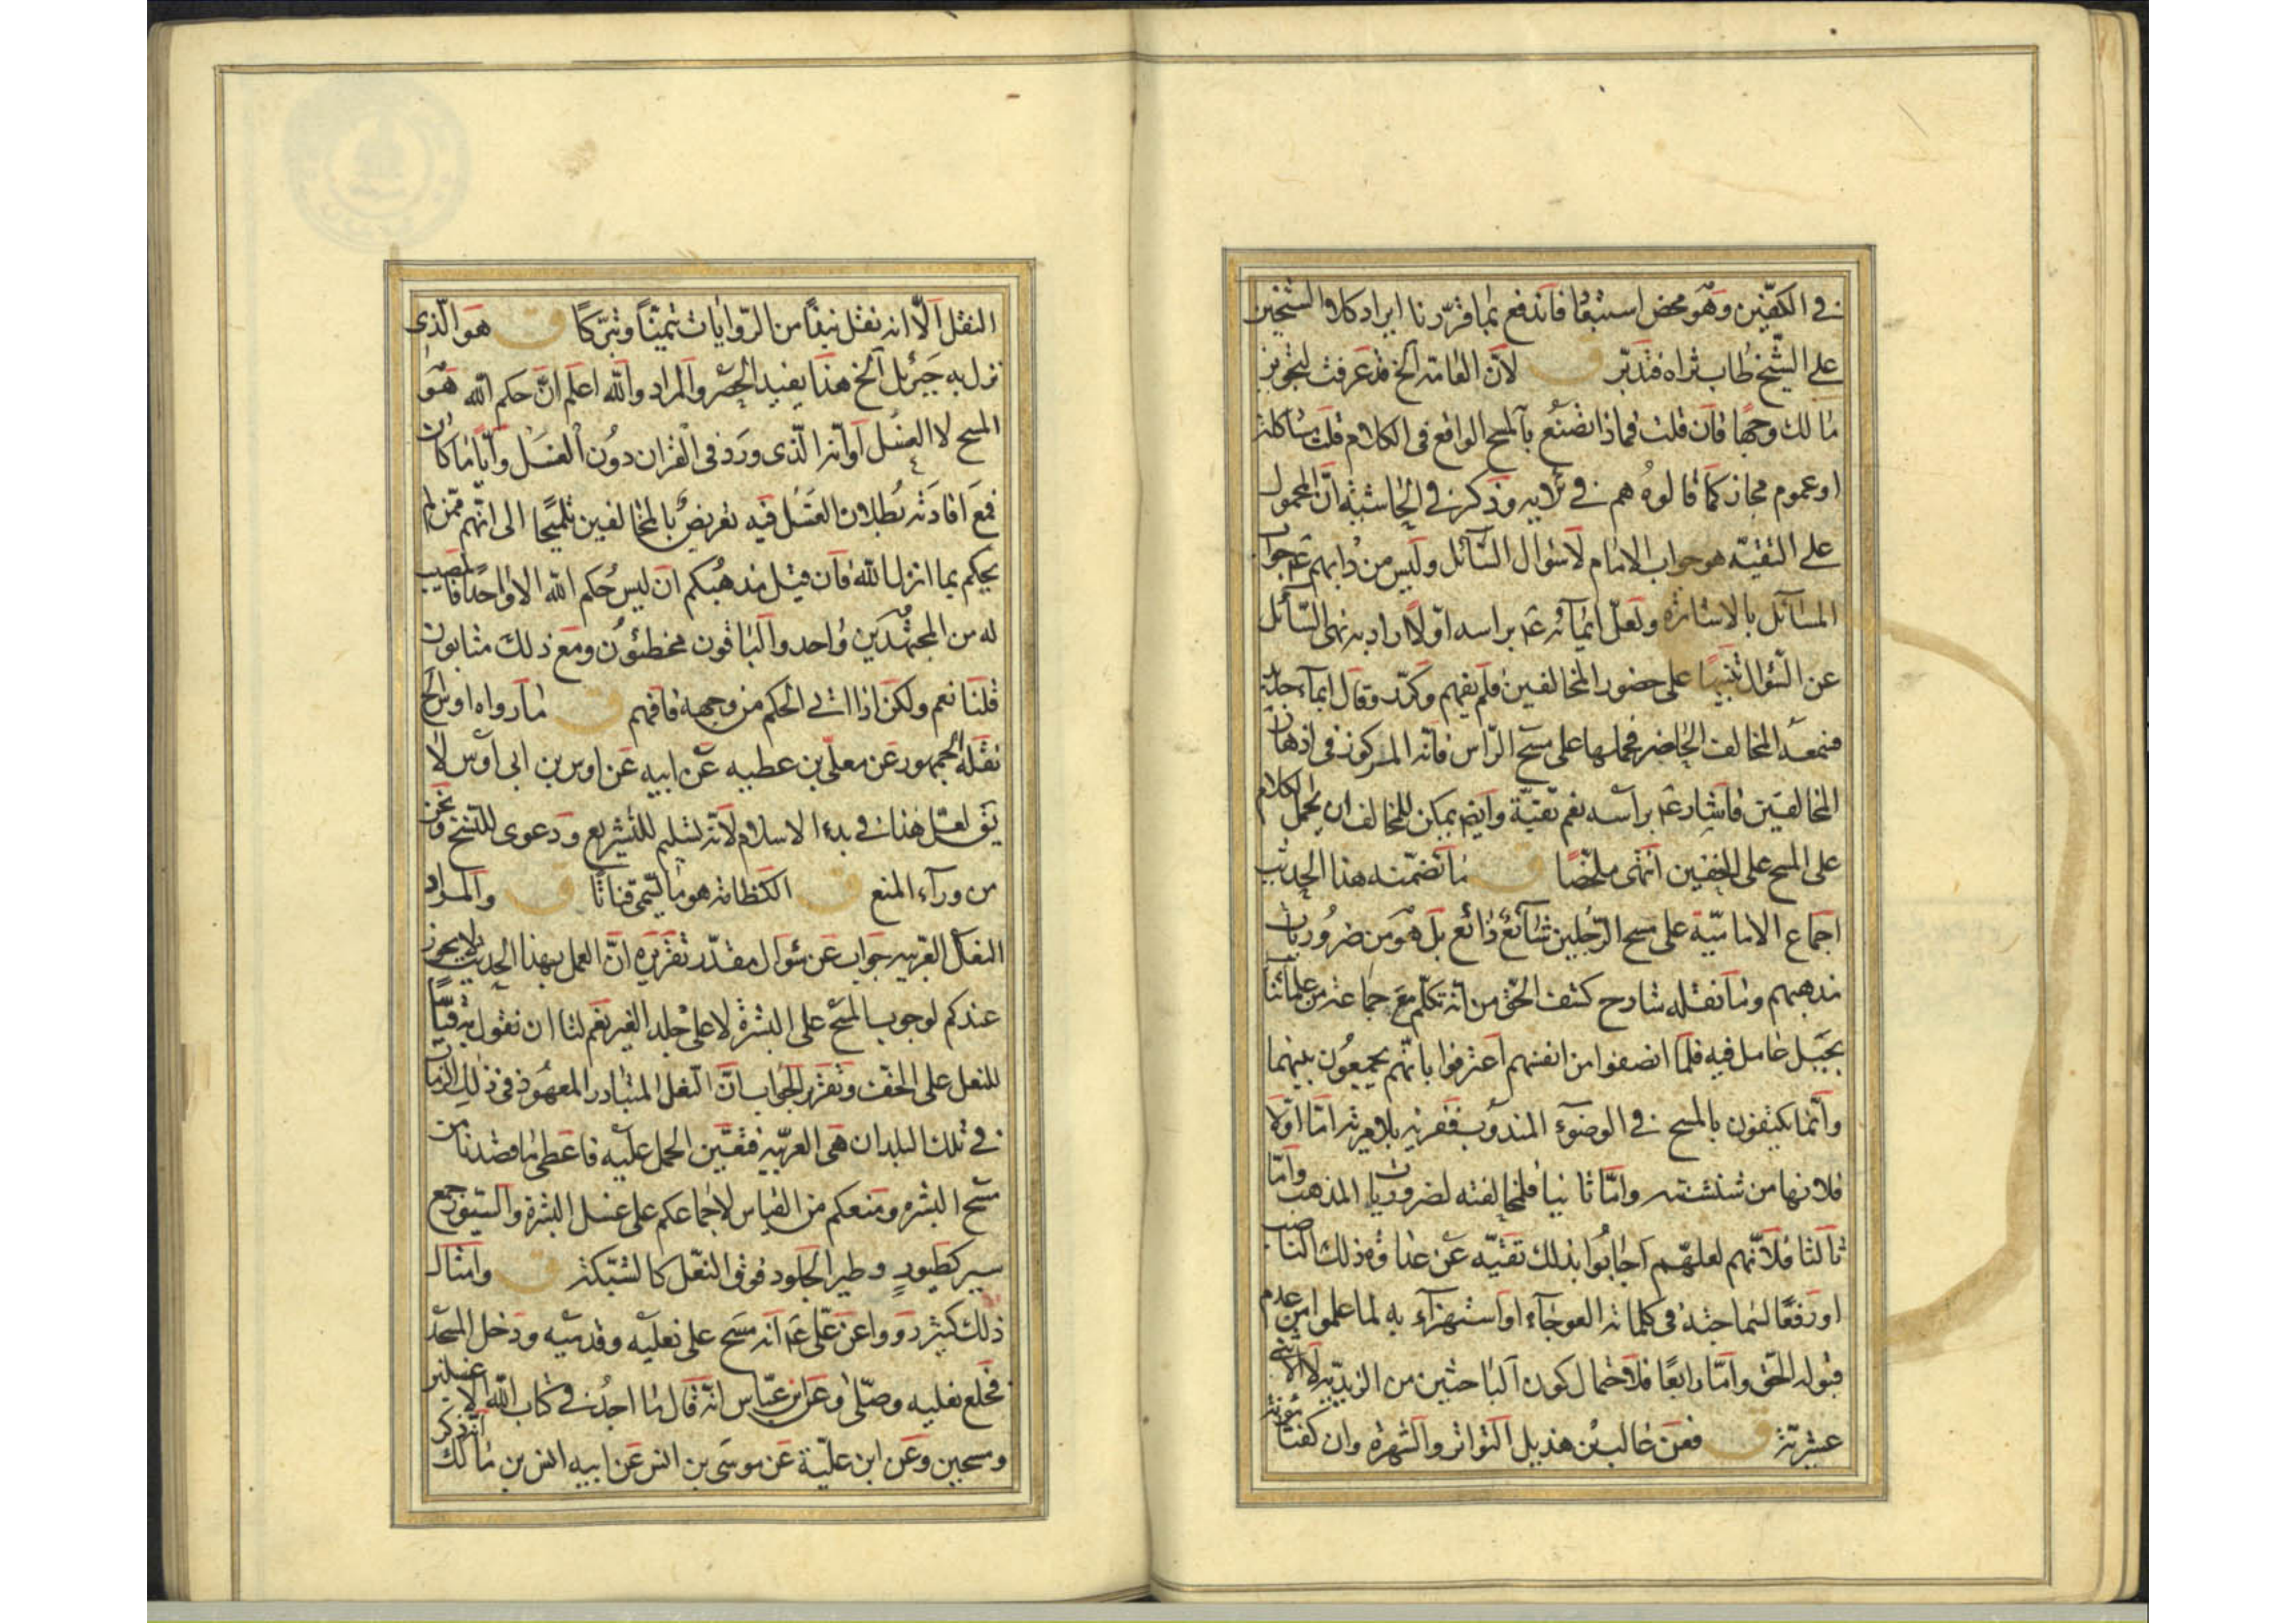 في الكفّين وهو محض استبعاد فاندفع بما قرّرنا ايراد كلا الشيخين
على الشّيخ طاب ثراه فتدبّر ق لانّ العامة الخ قد عرفت لتجويز
مالك وجها فان قلت فماذا تصنع بالمسح الواقع فى الكلام قلت مشاكلة
او عموم مجاز كما قالوه هم في وذكر في الحاشية انّ المحمول
على التقيّة هو جواب الامام لا سؤال السّائل وليس من دابهم ع جواب
المسائل بالاشارة ولعلّ ايمائه ع براسه اوّلا اراد به نهى السّائل
عن السّؤال تنبيها على حضور المخالفين فلم يفهم وكرّر وقال
المخالف الحاضر فحملها على مسح الرّاس فانّه المركوز فى اذهان
المخالفين فاشار ع براسه نعم تقيّة وايضا يمكن للمخالف ان يحمل الكلام
على المسح على الخفين انتهى ملخّصا ق ما تضمّنه هذا الحديث
اجماع الاماميّة على مسح الرّجلين شائع ذائع بل هو من ضروريات
مذهبهم وما نقله شارح كشف الحق من انّه تكلّم مع جماعة من علمائنا
بجبل عامل فيه فلمّا انصفوا من انفسهم اعترفوا بانّهم يجمعون بينهما
وانّما يكتفون بالمسح في الوضوء المندوب ففرية بلا مرية امّا اوّلا
فلانها من شنشنته وامّا ثانيا فلمخالفته لضروريات المذهب وامّا
ثالثا فلانّهم لعلّهم اجابوا بذلك تقيّة عن ذلك الناصب
او رفعا لسماجته فى كلماته العوجاء او استهزاء به لما علموا من عدم
قبوله الحق وامّا رابعا فلاحتمال كون الباحثين من الزيديّة لا الاثنى
عشريّة ق فعن غالب بن هذيل التواتر والشهرة وان كفتا مؤنة
النقل الّا انه نقل نبذا من الرّوايات تيمّنا وتبرّكا ق هو الّذى
نزل به جبرئيل الخ هذا يفيد الحصر والمراد والله اعلم انّ حكم الله هو
المسح لا الغسل او انّه الّذى ورد فى القران دون الغسل وايّا ما كان
فمع افادته بطلان الغسل فيه تعريض بالمخالفين تلميحا الى انّهم ممّن لم
يحكم بما انزل الله فان قيل مذهبكم ان ليس حكم الله الا واحدا فالمصيب
له من المجتهدين واحد والباقون مخطئون ومع ذلك مثابون
قلنا نعم ولكن اذا اتى الحكم من وجهه فافهم ق ما رواه اوس الخ
نقله الجمهور عن معلّى بن عطيه عن ابيه عن اوس بن ابى اوس لا
يق لعل هذا كان في بدء الاسلام لانّه تسليم للتشريع ودعوى للنسخ ونحن
من وراء المنع ق الكظامة هو ما يسمّى قناتا ق والمراد
النعل العربيه جواب عن سؤال مقدّر تقريره انّ العمل بهذا الحديث لا يجوز
عندكم لوجوب المسح على البشرة لا على جلد الغير نعم لنا ان نقول به قياسا
للنعل على الخف وتقرير الجواب انّ النعل المتبادر المعهود فى ذلك الزمان
في تلك البلدان هى العربيّه فتعيّن الحمل عليه فاعطى ما قصدنا من
مسح البشره ومنعكم من القياس لاجماعكم على غسل البشرة والسيور جمع
سير كطيور وطير الجلود فوق النعل كالشبكة ق وامثال
ذلك كثير رووا عن علّى ع انّه مسح على نعليه وقدميه ودخل المسجد
فخلع نعليه وصلّى وعن ابن عبّاس انّه قال ما اجد في كتاب الله الا غسلتين
ومسحين وعن ابن عليّة عن موسى بن انس عن ابيه انس بن مالك انّه ذكر